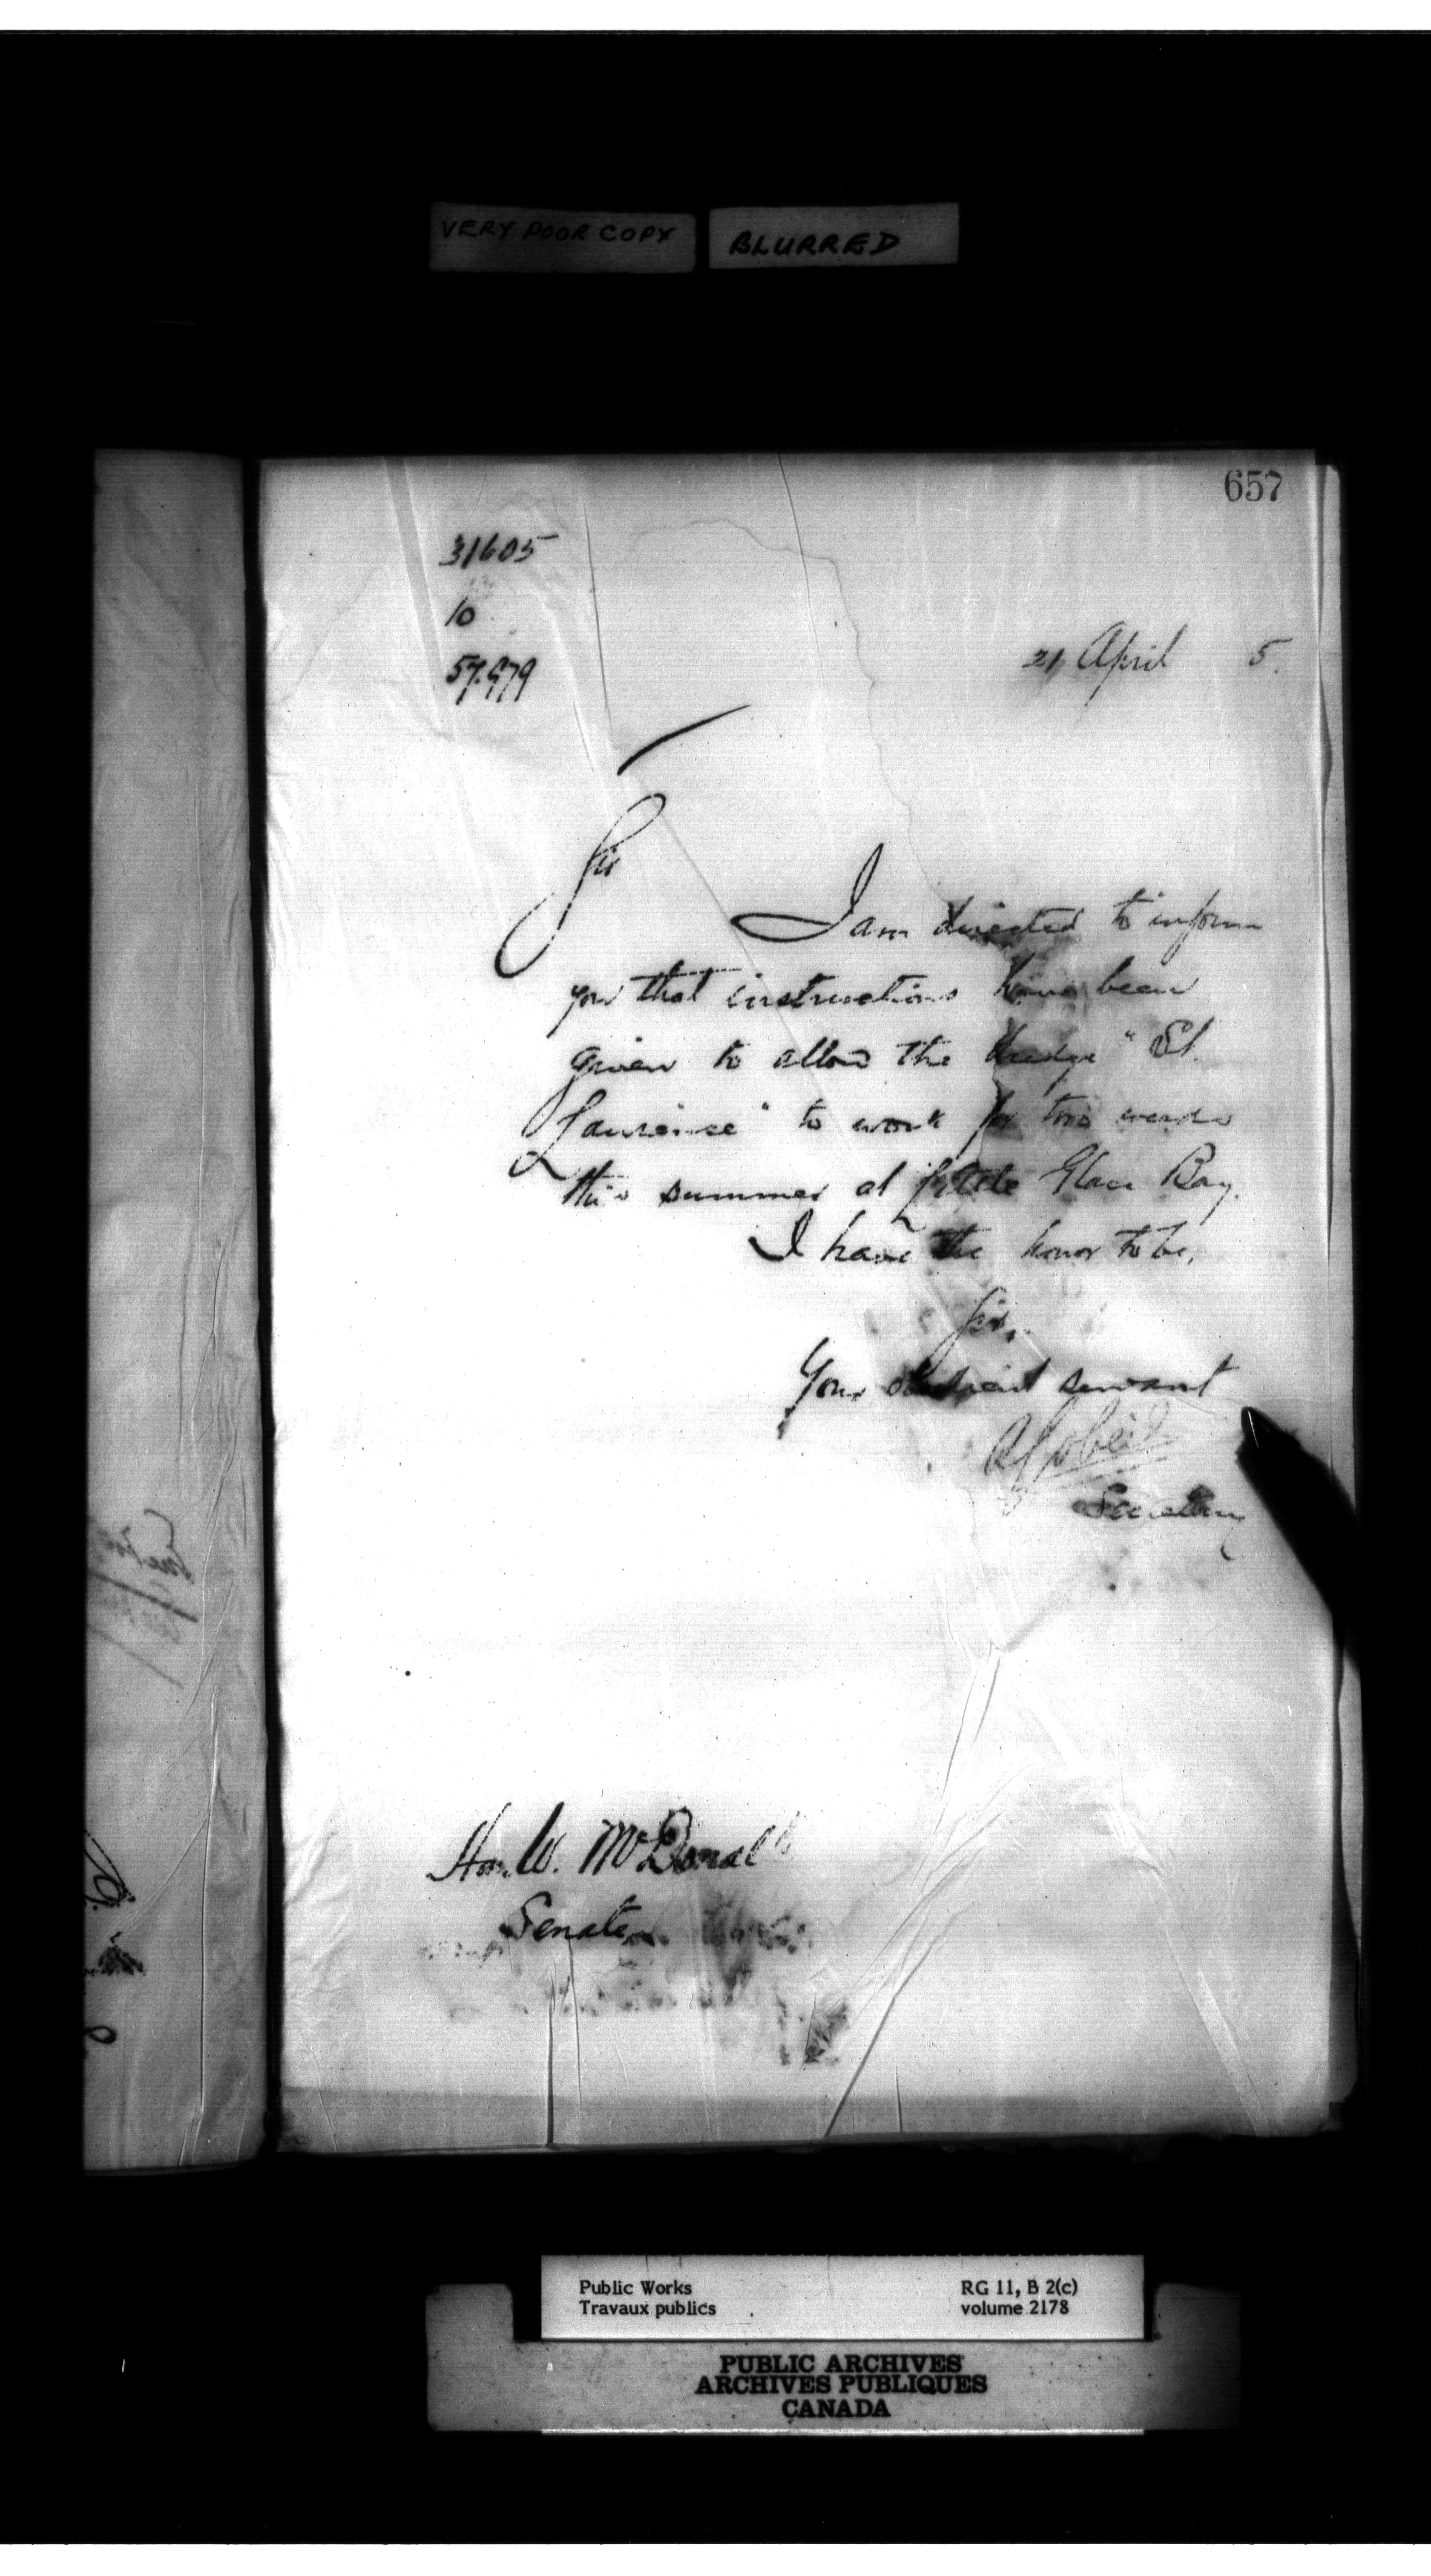 VERY POOR COPY BLURRED
657
31605
10
57.979
21 April 5.
Sir
I am directed to inform
you that instructions have been
given to allow the dredge "St.
Laurence" to work for two weeks
this summer at Little Glace Bay.
I have the honor to be,
Sir,
Your obedient servant
Secretary
Hon. W. McDonald
Senate
Public Works
Travaux publics
RG 11, B 2(c)
volume 2178
PUBLIC ARCHIVES
ARCHIVES PUBLIQUES
CANADA